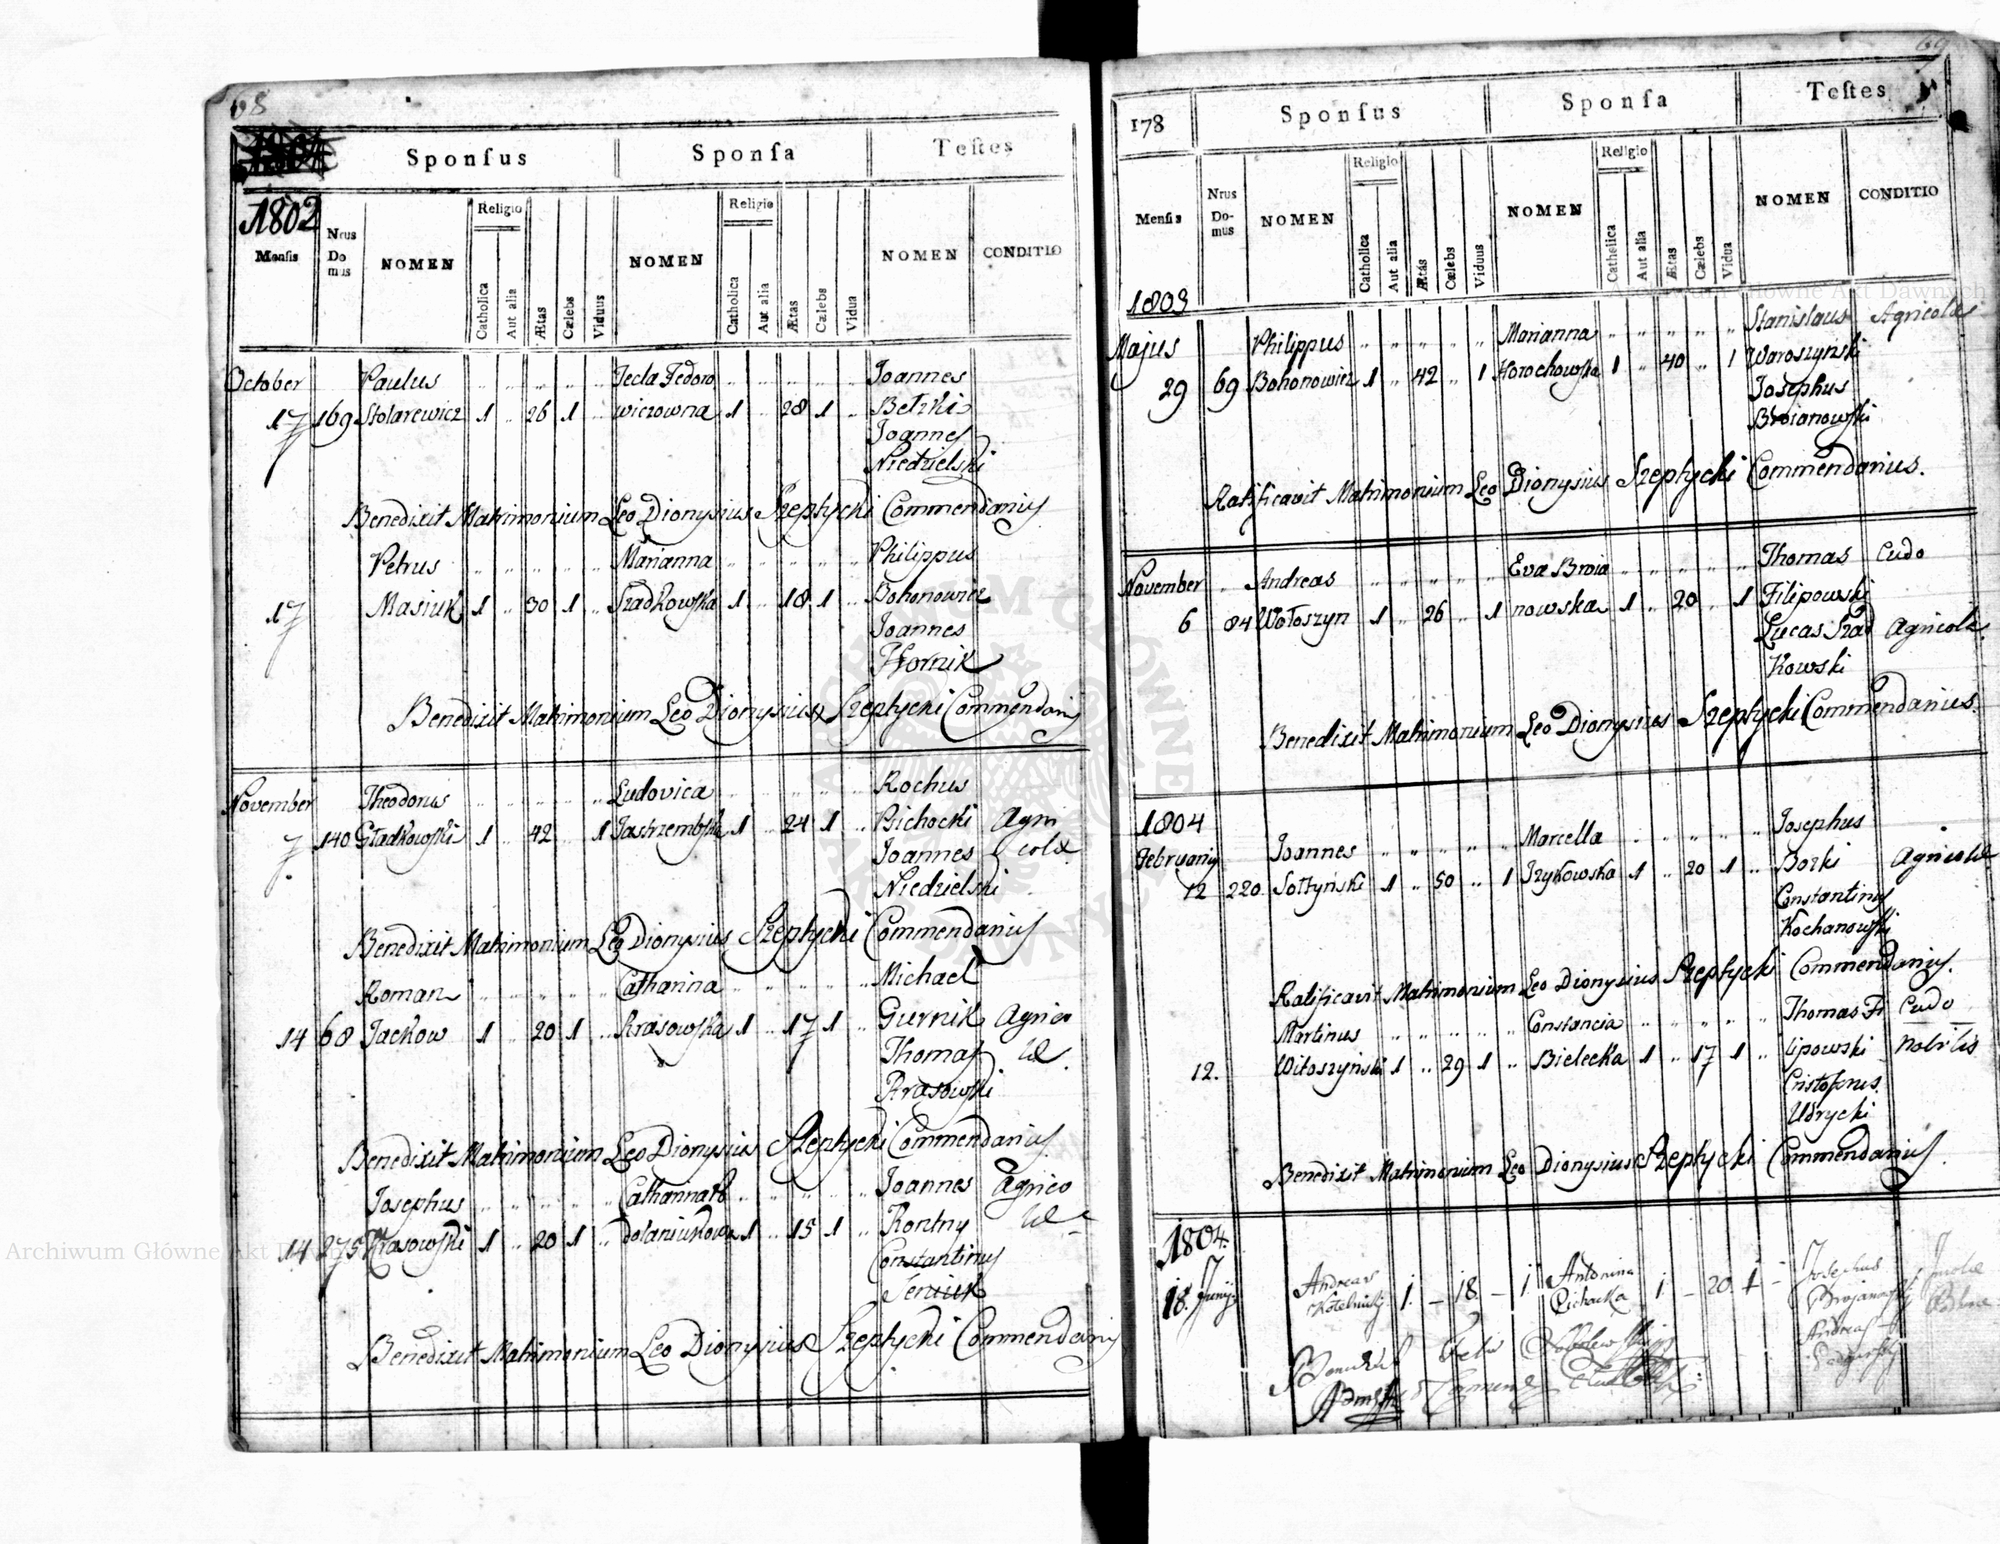 68
Sponſus Sponſa Teſtes
1802
Menſis Nrus Do mus NOMEN Religio Catholica Aut alia Ætas Cælebs Viduus NOMEN Religio Catholica Aut alia Ætas Cælebs Vidua NOMEN CONDITIO
October Paulus " " " " " Tecla Fedoro " " " " " Joannes
17 169 Stolarewicz 1 " 26 1 " wiczowna 1 " 28 1 " Betzki
Joannes
Niedzielski
Benedixit Matrimonium Leo Dionysius Szeptycki Commendarius
Petrus " " " " " Marianna " " " " " Philippus
17 Masiuk 1 " 30 1 " Szadkowska 1 " 18 1 " Bohonowicz
Joannes
Hornik
Benedixit Matrimonium Leo Dionysius Szeptycki Commendarius
November Theodorus " " " " " Ludovica " " " " " Rochus
7 140 Gładkowski 1 " 42 " 1 Jastrzembska 1 " 24 1 " Bichocki Agri
Joannes colæ
Niedzielski
Benedixit Matrimonium Leo Dionysius Szeptycki Commendarius
Roman " " " " " Catharina " " " " " Michael
14 68 Jackow 1 " 20 1 " Krasowska 1 " 17 1 " Gurnik Agrico
Thomas læ
Krasowski
Benedixit Matrimonium Leo Dionysius Szeptycki Commendarius
Josephus " " " " " Catharina " " " " " Joannes Agrico
14 275 Krasowski 1 " 20 1 " 1 " 15 1 " Rontny læ
Constantinus
Seniuk
Benedixit Matrimonium Leo Dionysius Szeptycki Commendarius
69
178 Sponſus Sponſa Teſtes
Menſis Nrus Do-mus NOMEN Religio Catholica Aut alia Ætas Cælebs Viduus NOMEN Religio Catholica Aut alia Ætas Cælebs Vidua NOMEN CONDITIO
1803
Majus Philippus " " " " " Marianna " " " " " Stanislaus Agricolæ
29 69 Bohonowicz 1 " 42 " 1 Horochowska 1 " 40 " 1 Waroszynski
Josephus
Broianowski
Ratificavit Matrimonium Leo Dionysius Szeptycki Commendarius.
November " Andreas " " " " " Eva Broia " " " " " Thomas Cudo
6 84 Wołoszyn 1 " 26 " 1 nowska 1 " 20 " 1 Filipowski
Lucas Szad Agricola
Kowski
Benedixit Matrimonium Leo Dionysius Szeptycki Commendarius.
1804
Februarius Joannes " " " " " Marcella " " " " " Josephus
12 220 Sołtyński 1 " 50 " 1 Jzykowska 1 " 20 1 " Borki Agricolæ
Constantinus
Kochanowski
Ratificavit Matrimonium Leo Dionysius Szeptycki Commendarius.
Martinus " " " " " Constancia " " " " " Thomas Fi Cudo
12. Witoszyński 1 " 29 1 " Bielecka 1 " 17 1 " lipowski Nobilis
Cristoforus
Udrycki
Benedixit Matrimonium Leo Dionysius Szeptycki Commendarius.
1804.
18. Junij Andreas 1. – 18 – 1. Antonina 1. – 20 1 – Josephus
Kotelnicki Cichacka Brojanowski
Andreas
Archiwum Główne Akt Dawnych
Archiwum Główne Akt Dawnych
ARCHIWUM GŁÓWNE AKT DAWNYCH